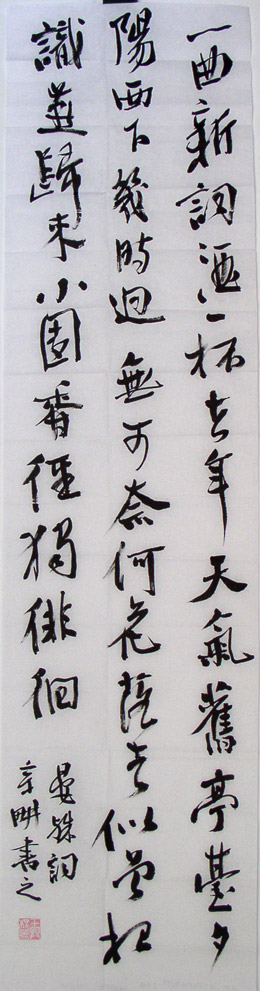 一曲新詞酒一杯去年天氣舊亭臺夕
陽西下幾時迴無可奈何花落去似曾相
識燕歸來小園香徑獨徘徊
晏殊詞
書之